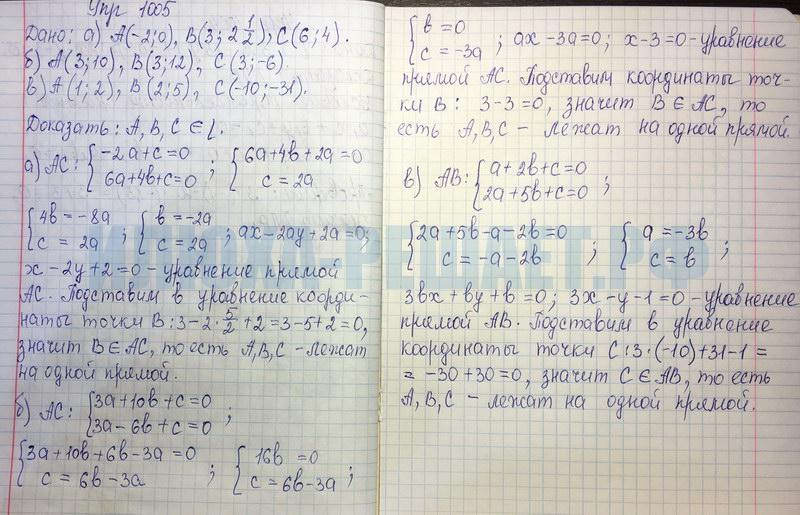 Упр 1005
Дано: а) A(-2;0), B(3; 2 1/2), C(6;4).
б) A(3;10), B(3;12), C(3;-6).
в) A(1;2), B(2;5), C(-10;-31).
Доказать: A, B, C ∈ l.
а) AC: { -2a+c=0
6a+4b+c=0 ; { 6a+4b+2a=0
c=2a
{ 4b=-8a
c=2a ; { b=-2a
c=2a ; ax-2ay+2a=0;
x-2y+2=0 - уравнение прямой
AC. Подставим в уравнение коорди-
наты точки B: 3-2·5/2+2=3-5+2=0,
значит B∈AC, то есть A,B,C - лежат
на одной прямой.
б) AC: { 3a+10b+c=0
3a-6b+c=0 ;
{ 3a+10b+6b-3a=0
c=6b-3a ; { 16b=0
c=6b-3a ;
{ b=0
c=-3a ; ax-3a=0; x-3=0 - уравнение
прямой AC. Подставим координаты точ-
ки B: 3-3=0, значит B∈AC, то
есть A,B,C - лежат на одной прямой.
в) AB: { a+2b+c=0
2a+5b+c=0 ;
{ 2a+5b-a-2b=0
c=-a-2b ; { a=-3b
c=b ;
3bx+by+b=0; 3x-y-1=0 - уравнение
прямой AB. Подставим в уравнение
координаты точки C: 3·(-10)+31-1=
= -30+30=0, значит C∈AB, то есть
A,B,C - лежат на одной прямой.